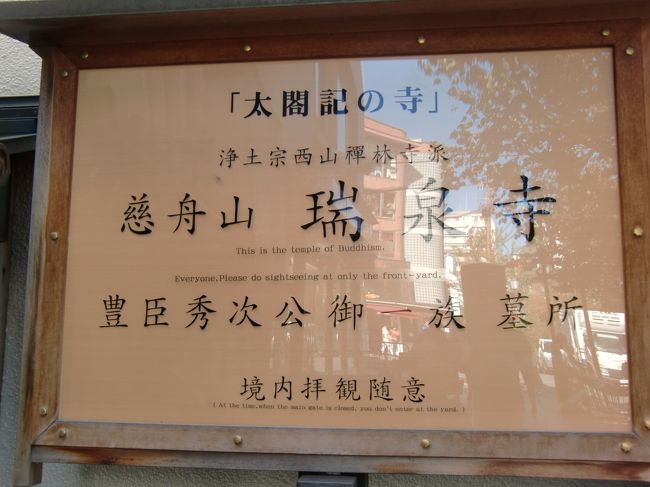 「太閤記の寺」
浄土宗西山禪林寺派
慈舟山 瑞泉寺
This is the temple of Buddhism.
Everyone,Please do sightseeing at only the front-yard.
豊臣秀次公御一族 墓所
境内拝観随意
( At the time,when the main gate is closed, you don't enter at the yard. )